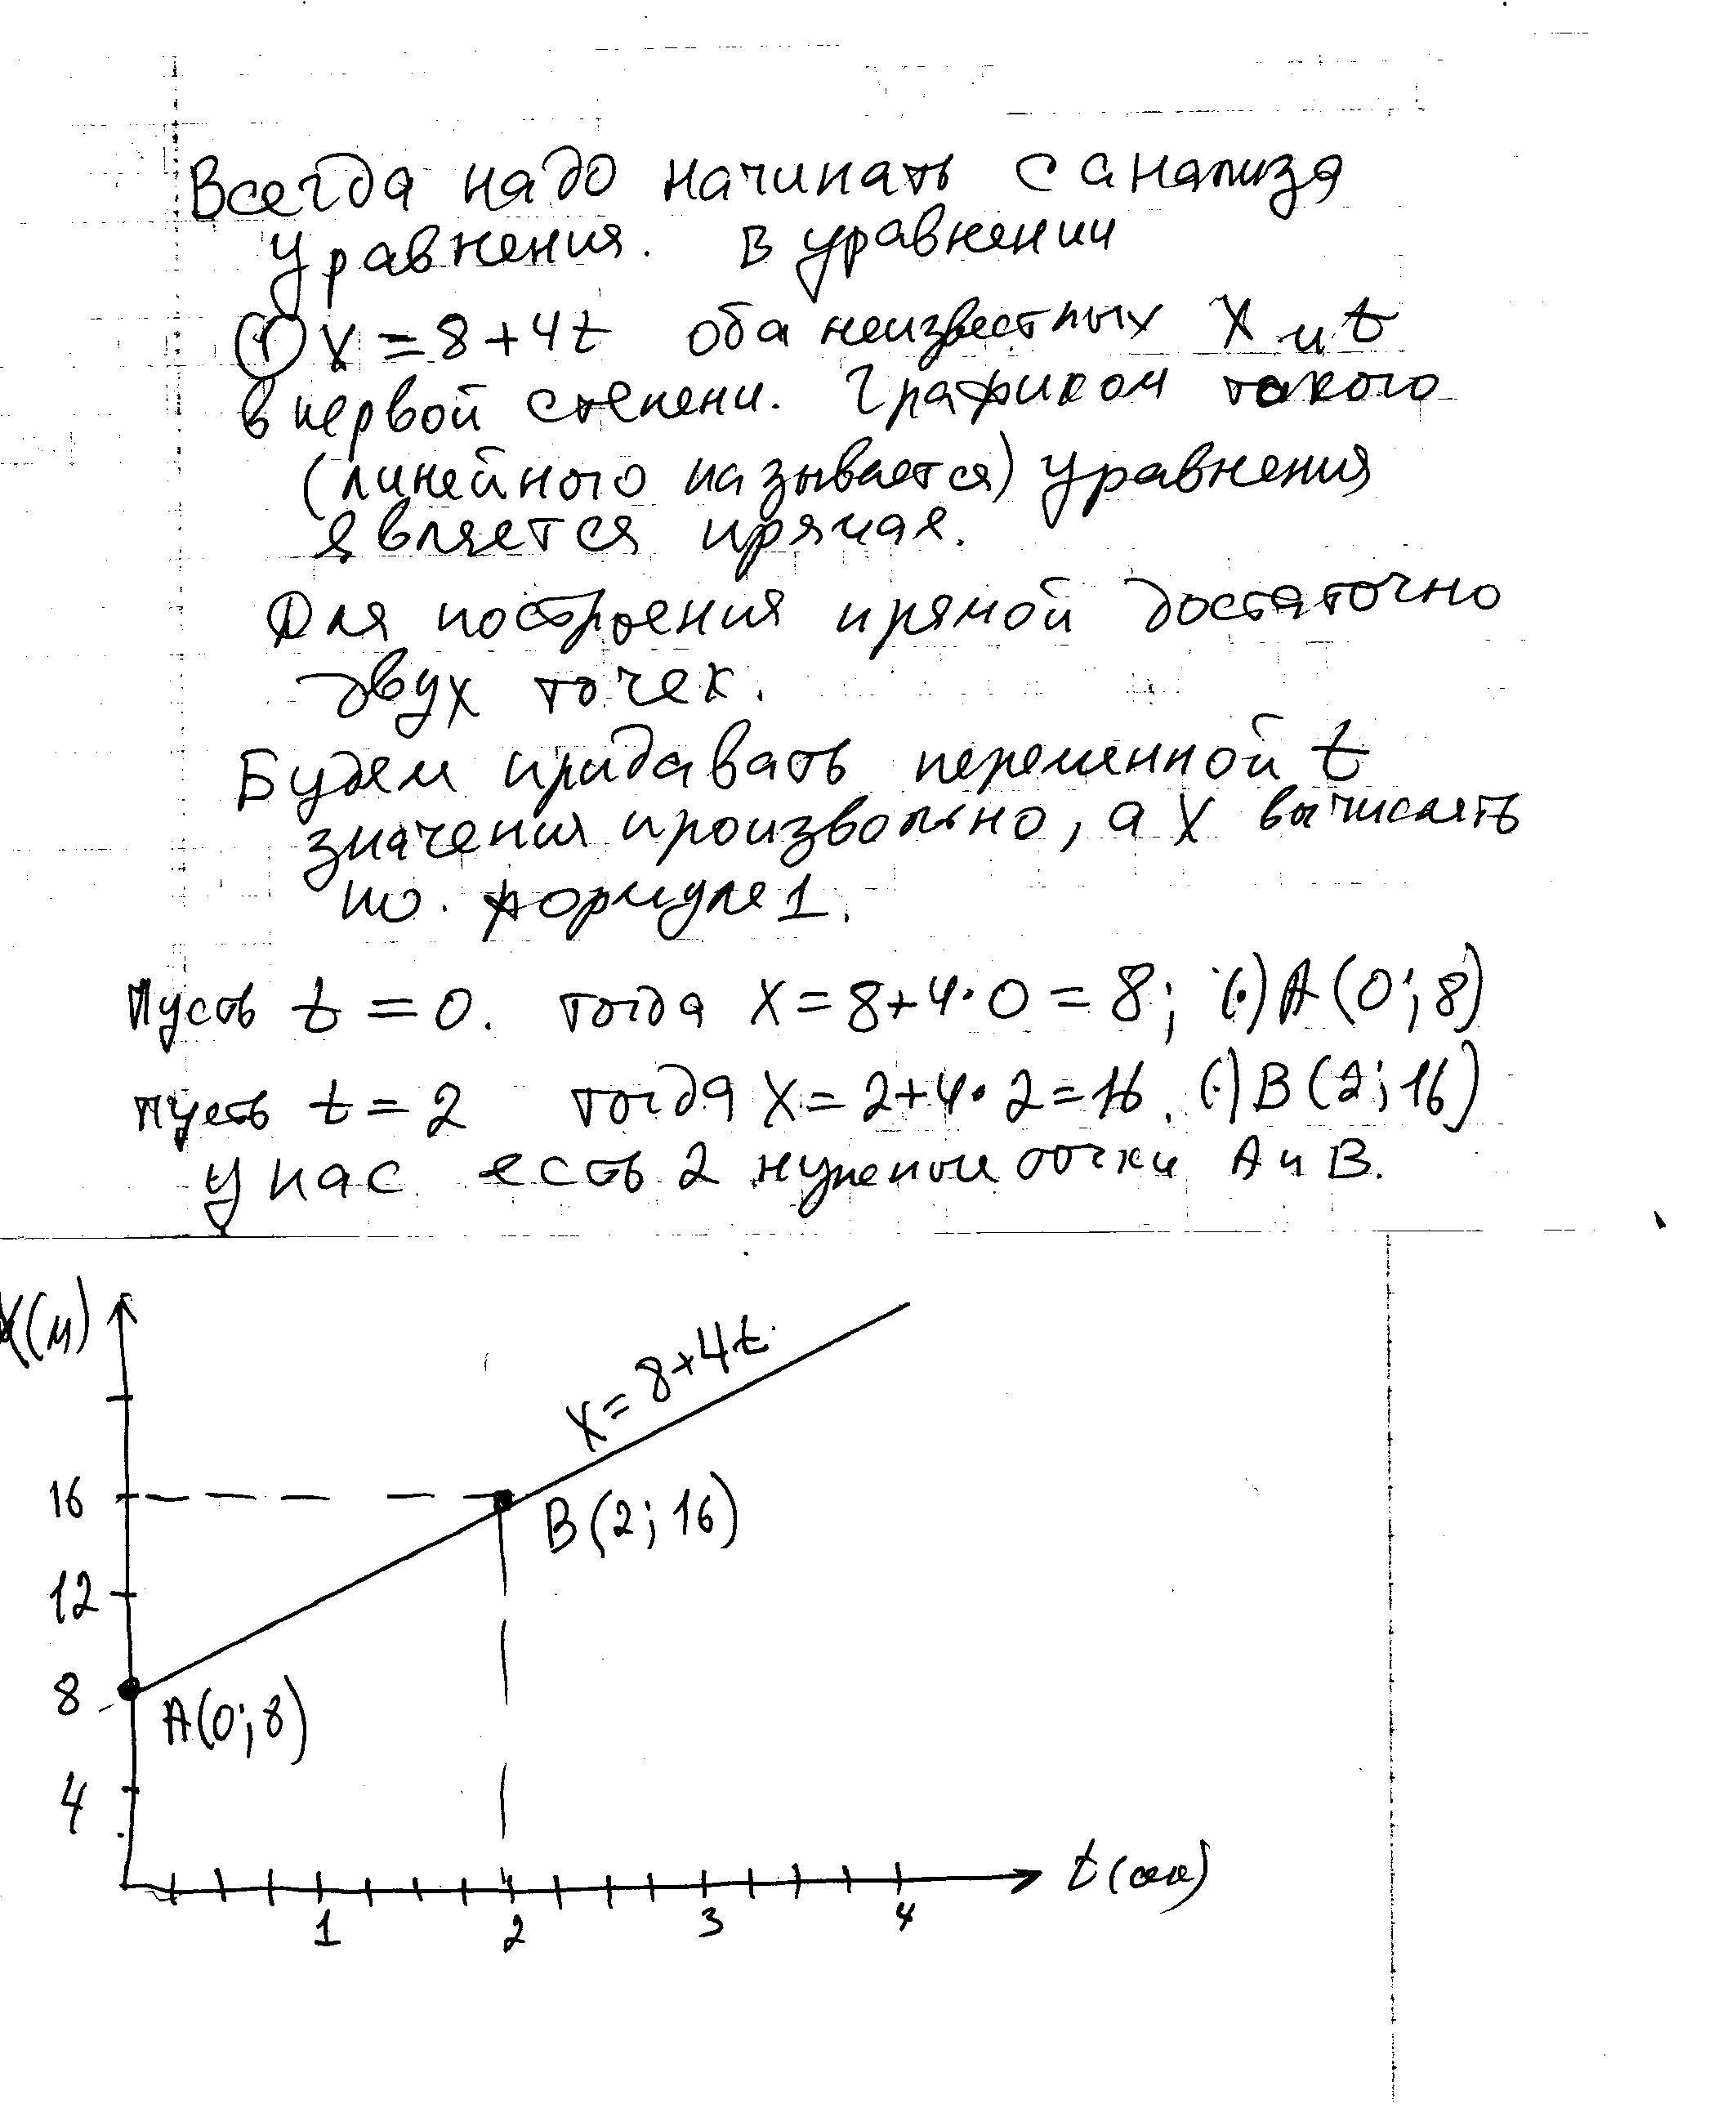 Всегда надо начинать с анализа
уравнения. В уравнении
① X = 8 + 4t оба неизвестных X и t
в первой степени. Графиком такого
(линейного называется) уравнения
является прямая.
Для построения прямой достаточно
двух точек.
Будем придавать переменной t
значения произвольно, а X вычислять
по формуле 1.
Пусть t = 0. тогда X = 8 + 4 · 0 = 8; (·) A (0; 8)
Пусть t = 2 тогда X = 2 + 4 · 2 = 16. (·) B (2; 16)
У нас есть 2 нужные точки A и B.
X(м)
X = 8 + 4t
16
B (2; 16)
12
8
A (0; 8)
4
t (сек)
1 2 3 4